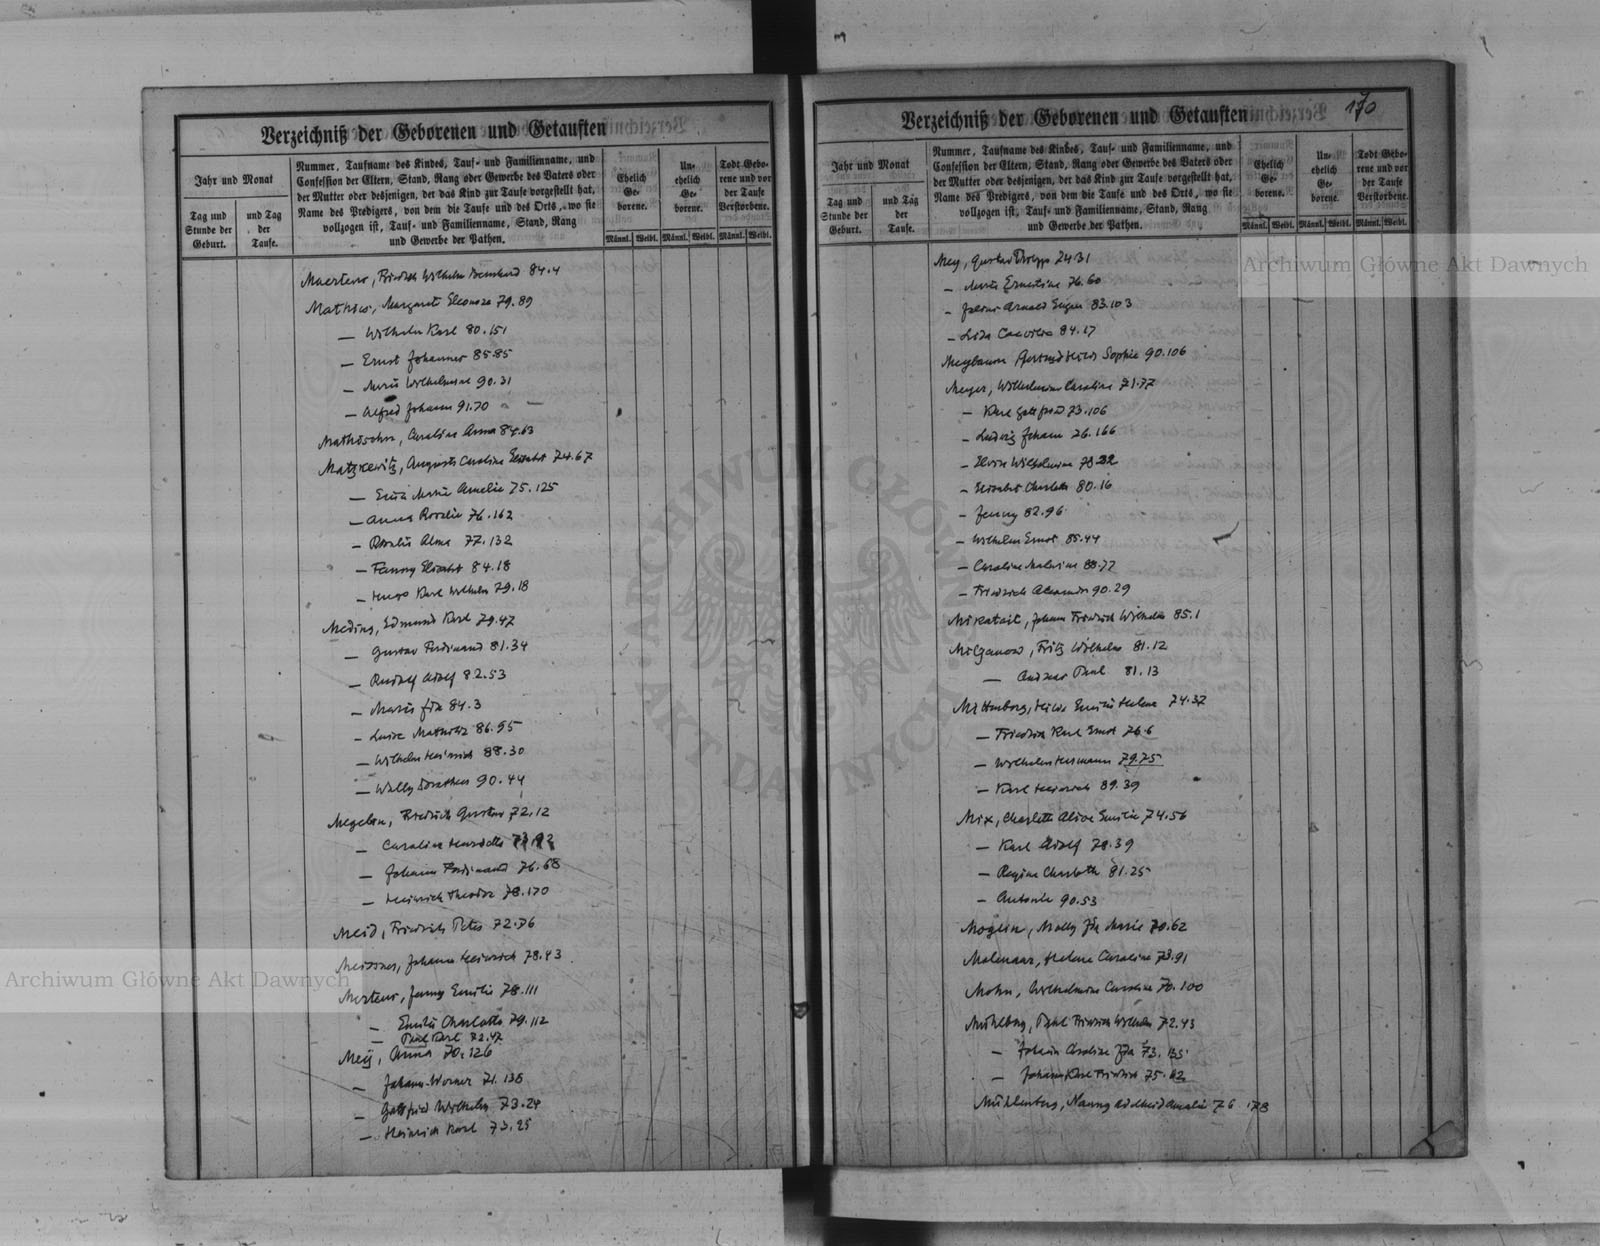 Verzeichniß der Geborenen und Getauften
Jahr und Monat
Tag und Stunde der Geburt.
und Tag der Taufe.
Nummer, Taufname des Kindes, Tauf- und Familienname, und
Confession der Eltern, Stand, Rang oder Gewerbe des Vaters oder
der Mutter oder desjenigen, der das Kind zur Taufe vorgestellt hat,
Name des Predigers, von dem die Taufe und des Orts, wo sie
vollzogen ist, Tauf- und Familienname, Stand, Rang
und Gewerbe der Pathen.
Ehelich Ge- borene.
Un- ehelich Ge- borene.
Todt Gebo- rene und vor der Taufe Verstorbene.
Männl. Weibl. Männl. Weibl. Männl. Weibl.
Maertens, Friedrich Wilhelm Bernhard 84.4
Mathies, Margarete Eleonora 79.89
— Wilhelm Karl 80.151
— Ernst Johannes 85.85
— Marie Wilhelmine 90.31
— Alfred Johann 91.70
Caroline Anna 84.63
Matzkewitz, Auguste Caroline Elisabet 74.67
— Marie Amelie 75.125
— Anna Rosalie 76.162
— Rosalie Alma 77.132
— Fanny Elisabet 84.18
— Hugo Karl Wilhelm 79.18
Meding, Edmund Karl 79.47
— Gustav Ferdinand 81.34
— Rudolf Adolf 82.53
— Marie Ida 84.3
— Luise Mathilde 86.95
— Wilhelm Heinrich 88.30
— Wally Dorothea 90.44
Friedrich Gustav 72.12
— Caroline Henriette
— Johann Ferdinand 76.68
— Heinrich Theodor 78.170
Meid, Friedrich Peter 72.76
Meissner, Johann Heinrich 78.43
Mertens, Jenny Emilie 78.111
— Emilie Charlotte 79.112
— Paul Karl 72.47
Meÿ, Anna 70.126
— Johann Werner 71.138
— Gottfried Wilhelm 73.24
— Heinrich Karl 73.25
170
Verzeichniß der Geborenen und Getauften
Jahr und Monat
Tag und Stunde der Geburt.
und Tag der Taufe.
Nummer, Taufname des Kindes, Tauf- und Familienname, und
Confession der Eltern, Stand, Rang oder Gewerbe des Vaters oder
der Mutter oder desjenigen, der das Kind zur Taufe vorgestellt hat,
Name des Predigers, von dem die Taufe und des Orts, wo sie
vollzogen ist, Tauf- und Familienname, Stand, Rang
und Gewerbe der Pathen.
Ehelich Ge- borene.
Un- ehelich Ge- borene.
Todt Gebo- rene und vor der Taufe Verstorbene.
Männl. Weibl. Männl. Weibl. Männl. Weibl.
Mey, Gustav Philipp 74.31
— Marie Ernestine 76.60
— Julius Arnold Eugen 83.103
— Lida 84.17
Meybaum Gertrud Hilda Sophie 90.106
Meyer, Wilhelmine Caroline 71.77
— Karl Gottfried 73.106
— Ludwig Johann 76.166
— Elvira Wilhelmine 78.22
— Elisabet Charlotte 80.16
— Jenny 82.96
— Wilhelm Ernst 85.44
— Caroline Malwine 88.77
— Friedrich Alexander 90.29
Johann Friedrich Wilhelm 85.1
Milzanow, Fritz Wilhelm 81.12
— Andreas Paul 81.13
Mittenborg, Hilda Emilie Helene 74.37
— Friedrich Karl Ernst 76.6
— Wilhelm Hermann 79.75
— Karl Heinrich 89.39
Mix, Charlotte Alice Emilie 74.56
— Karl Adolf 78.39
— Regine Charlotte 81.25
— Antonie 90.53
Moglin, Molly Ida Marie 70.62
Molenaar, Helene Caroline 73.91
Mohn, Wilhelmine Caroline 70.100
Mühlberg, Paul Friedrich Wilhelm 72.43
— Johann Caroline Ida 73.135
— Johann Karl Friedrich 75.62
Mühlenberg, Nanny Adelheid Amalie 76.178
Archiwum Główne Akt Dawnych
Archiwum Główne Akt Dawnych
ARCHIWUM GŁÓWNE AKT DAWNYCH